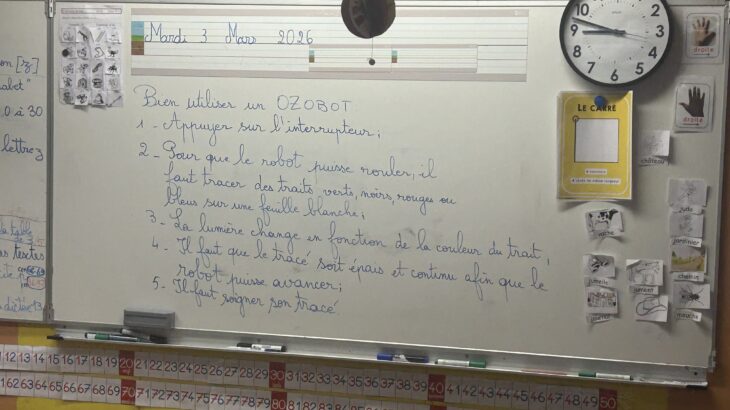 Mardi 3 Mars 2026
Bien utiliser un OZOBOT
1 - Appuyer sur l'interrupteur ;
2 - Pour que le robot puisse rouler, il
faut tracer des traits verts, noirs, rouges ou
bleus sur une feuille blanche ;
3 - La lumière change en fonction de la couleur du trait ;
4 - Il faut que le tracé soit épais et continu afin que le
robot puisse avancer ;
5 - Il faut soigner son tracé
0 à 30
lettre z
textes
LE CARRÉ
droite
droite
château
vache
jardinier
jument
12 1 2 3 4 5 6 7 8 9 10 11
11 12 13 14 15 16 17 18 19 20 21 22 23 24 25 26 27 28 29 30 31 32 33 34 35 36 37 38 39 40 41 42 43 44 45 46 47 48 49 50
61 62 63 64 65 66 67 68 69 70 71 72 73 74 75 76 77 78 79 80 81 82 83 84 85 86 87 88 89